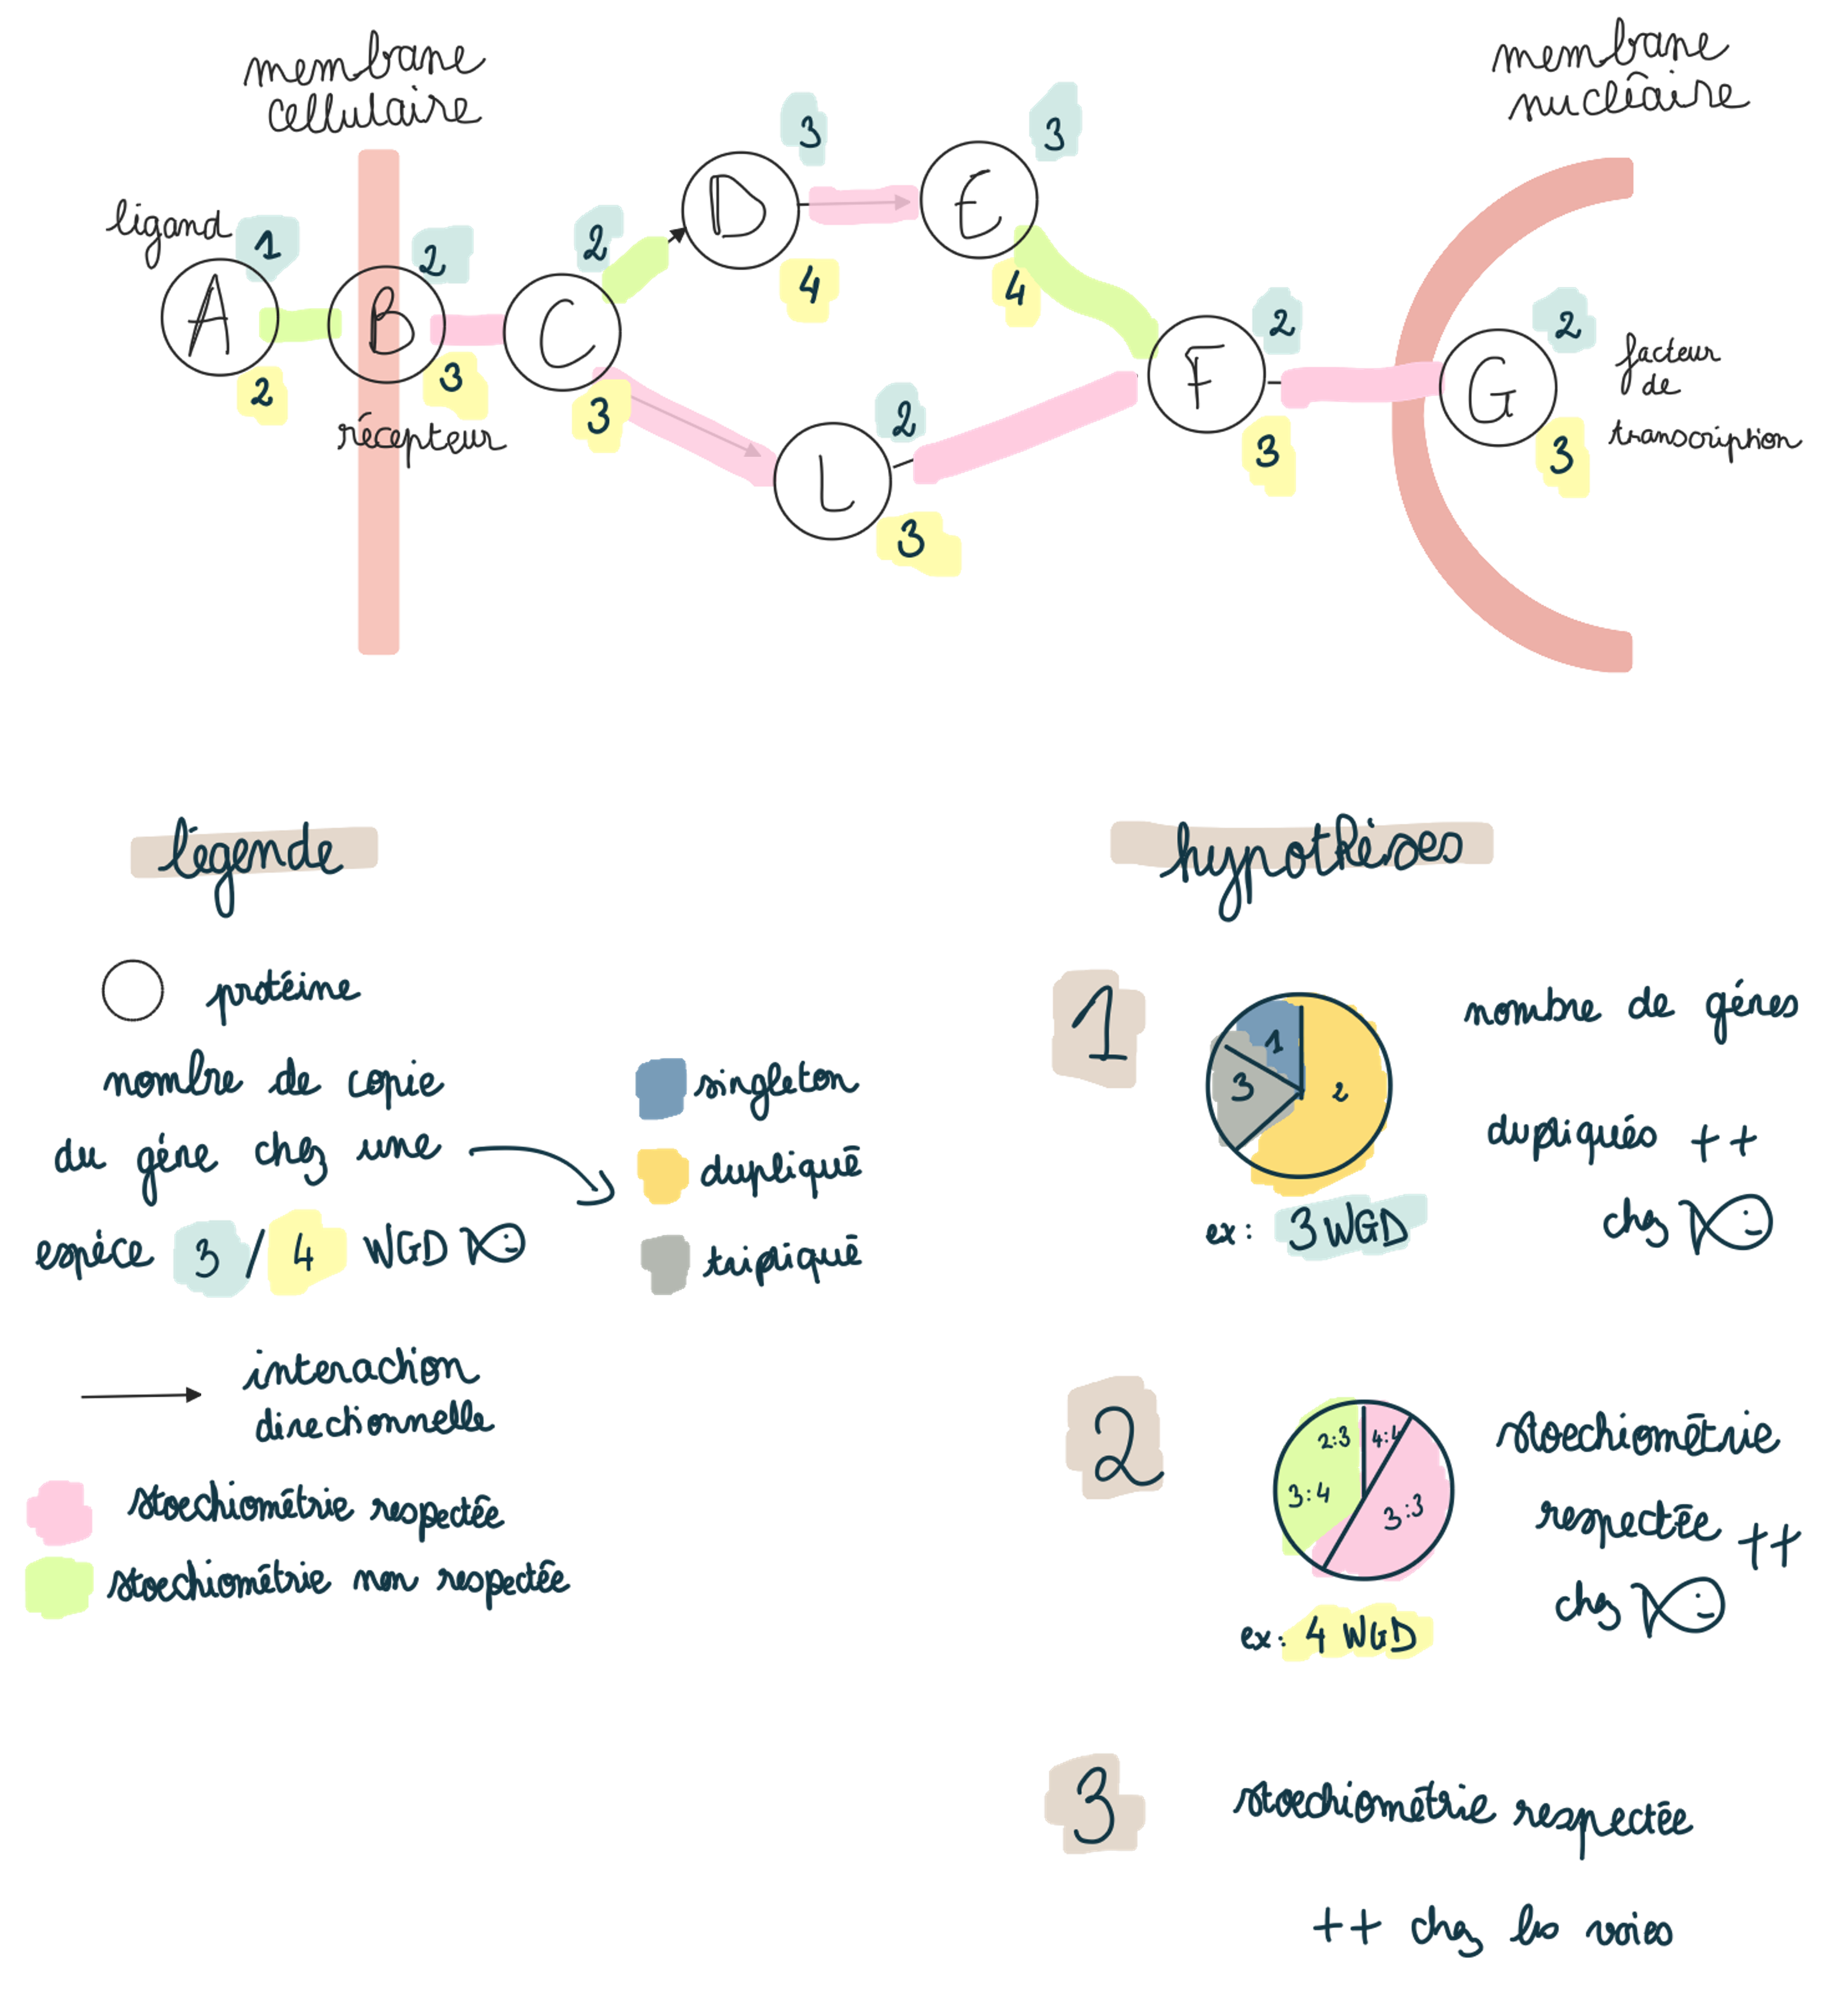 membrane
cellulaire
membrane
nucléaire
ligand
1
A
2
2
B
3
récepteur
2
C
3
3
D
4
3
E
4
2
L
3
2
F
3
2
G
3
facteur
de
transcription
légende
protéine
nombre de copie
du gène chez une
espèce 3/4 WGD
singleton
dupliqué
tripliqué
interaction
directionnelle
stoechiométrie respectée
stoechiométrie non respectée
hypothèses
1
1
2
3
ex: 3 WGD
nombre de gènes
dupliqués ++
chez
2
2:3
4:4
3:4
3:3
ex: 4 WGD
stoechiométrie
respectée ++
chez
3
stoechiométrie respectée
++ chez les voies